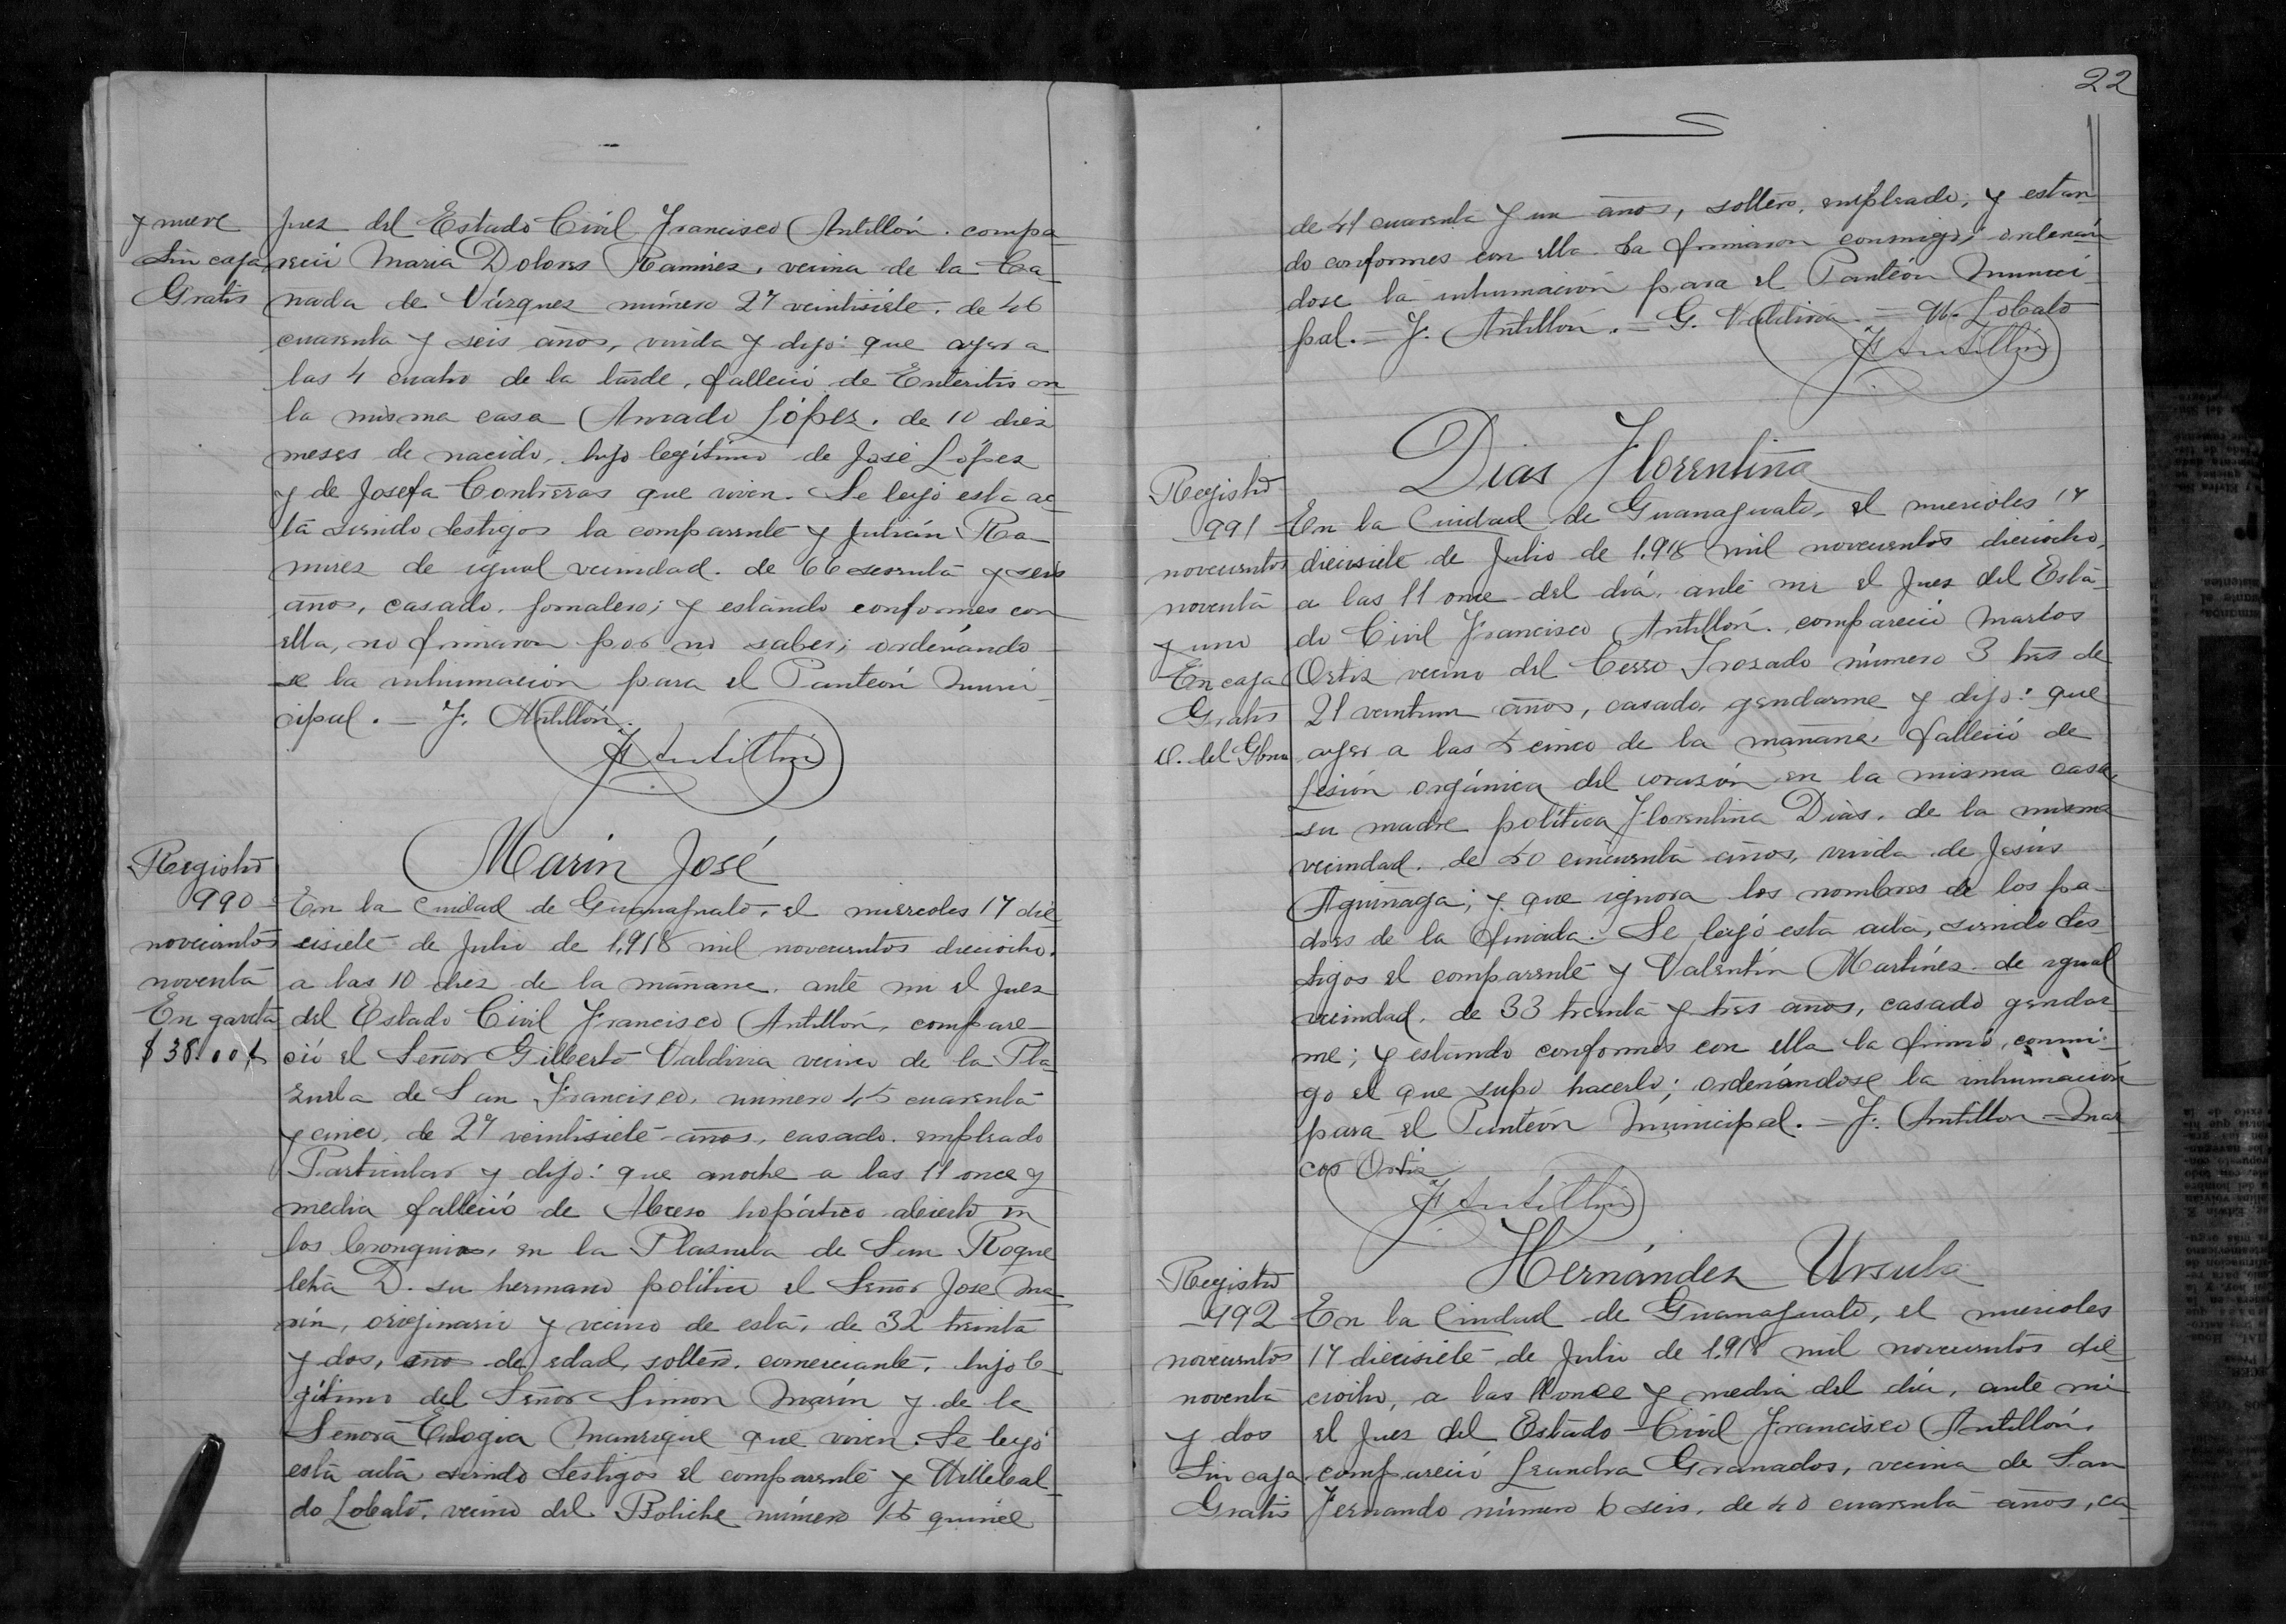 y nueve
Sin caja
Gratis
Juez del Estado Civil Francisco Antillón. compa
reció Maria Dolores Ramirez, vecina de la Ca
ñada de Vázquez número 27 veintisiete. de 46
cuarenta y seis años, viuda y dijo: que ayer a
las 4 cuatro de la tarde, falleció de Enteritis en
la misma casa Amado López. de 10 diez
meses de nacido, hijo legítimo de José López
y de Josefa Contreras que viven. Se leyó esta ac
ta siendo testigos la comparente y Julián Ra
mirez de igual vecindad. de 66 sesenta y seis
años, casado, jornalero; y estando conformes con
ella, no firmaron por no saber; ordenándo
se la inhumación para el Panteón Muni
cipal. — F. Antillón.
F Antillón
Marin José
Registro
990
novecientos
noventa
En gaveta
$38.00 ¢
En la Ciudad de Guanajuato, el miercoles 17 die
cisiete de Julio de 1,918 mil novecientos dieciocho.
a las 10 diez de la mañana. ante mi el Juez
del Estado Civil Francisco Antillón, compare-
ció el Señor Gilberto Valdivia vecino de la Pla
zuela de San Francisco, número 45 cuarenta
y cinco, de 27 veintisiete años, casado. empleado
Particular y dijo: que anoche a las 11 once y
media falleció de Abceso hepático abierto en
los bronquios, en la Plazuela de San Roque
letra D. su hermano político el Señor Jose Ma-
rín, originario y vecino de esta, de 32 treinta
y dos, años de edad, soltero. comerciante, hijo le
gítimo del Señor Simon Marín y de la
Señora Eulogia Manrique que viven. Se leyó
esta acta siendo testigos el comparente y Willebal
do Lobato, vecino del Boliche número 15 quince
22
de 41 cuarenta y un años, soltero, empleado, y estan
do conformes con ella la firmaron conmigo; ordenán
dose la inhumación para el Panteón Munici
pal. — F. Antillón. — G. Valdivia — W. Lobato
F Antillón
Dias Florentina
Registro
991
novecientos
noventa
y uno
En caja
Gratis
O. del Gbno
En la Ciudad de Guanajuato, el miercoles 17
diecisiete de Julio de 1.918 mil novecientos dieciocho,
a las 11 once del día, ante mi el Juez del Esta-
do Civil Francisco Antillón. compareció Marcos
Ortiz vecino del Cerro Trozado número 3 tres de
21 veintiun años, casado, gendarme y dijo: que
ayer a las 5 cinco de la mañana, falleció de
Lesión orgánica del corazón en la misma casa,
su madre política Florentina Dias, de la misma
vecindad. de 50 cincuenta años, viuda de Jesús
Aguiñaga; y que ignora los nombres de los pa-
dres de la finada. Se leyó esta acta, siendo tes-
tigos el comparente y Valentín Martínez de igual
vecindad. de 33 treinta y tres años, casado gendar
me; y estando conformes con ella la firmó, conmi-
go el que supo hacerlo; ordenándose la inhumación
para el Panteón Municipal. — F. Antillon — Mar
cos Ortiz
F Antillón
Hernández Ursula
Registro
992
novecientos
noventa
y dos
Sin caja
Gratis
En la Ciudad de Guanajuato, el miercoles
17 diecisiete de Julio de 1,918 mil novecientos die
ciocho, a las 11 once y media del día, ante mi
el Juez del Estado Civil Francisco Antillón,
compareció Leandra Granados, vecina de San
Fernando número 6 seis, de 40 cuarenta años, ca-